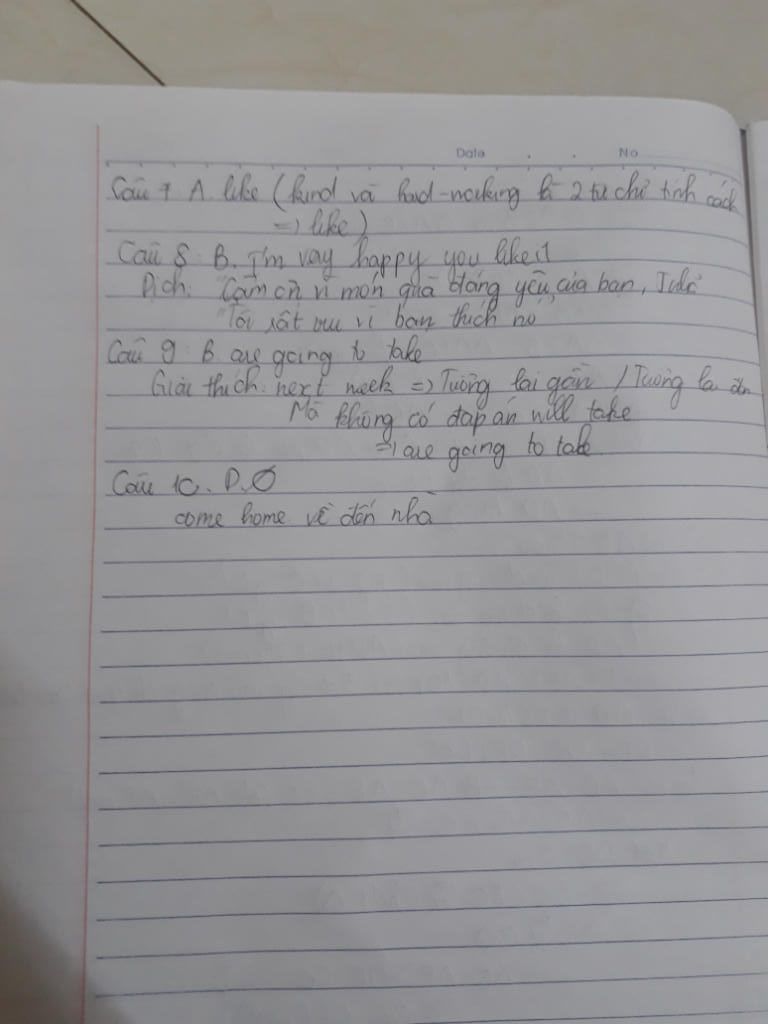 Date . . No
Câu 7 A. like (kind và hard-working là 2 từ chỉ tính cách
=> like)
Câu 8: B. I'm vay happy you like it
Dịch: Cảm ơn vì món quà đáng yêu của bạn,
Tôi rất vui vì bạn thích nó
Câu 9: B are going to take
Giải thích: next week => Tương lai gần / Tương lai
Mà không có đáp án will take
=> are going to take
Câu 10. D. Ø
come home về đến nhà